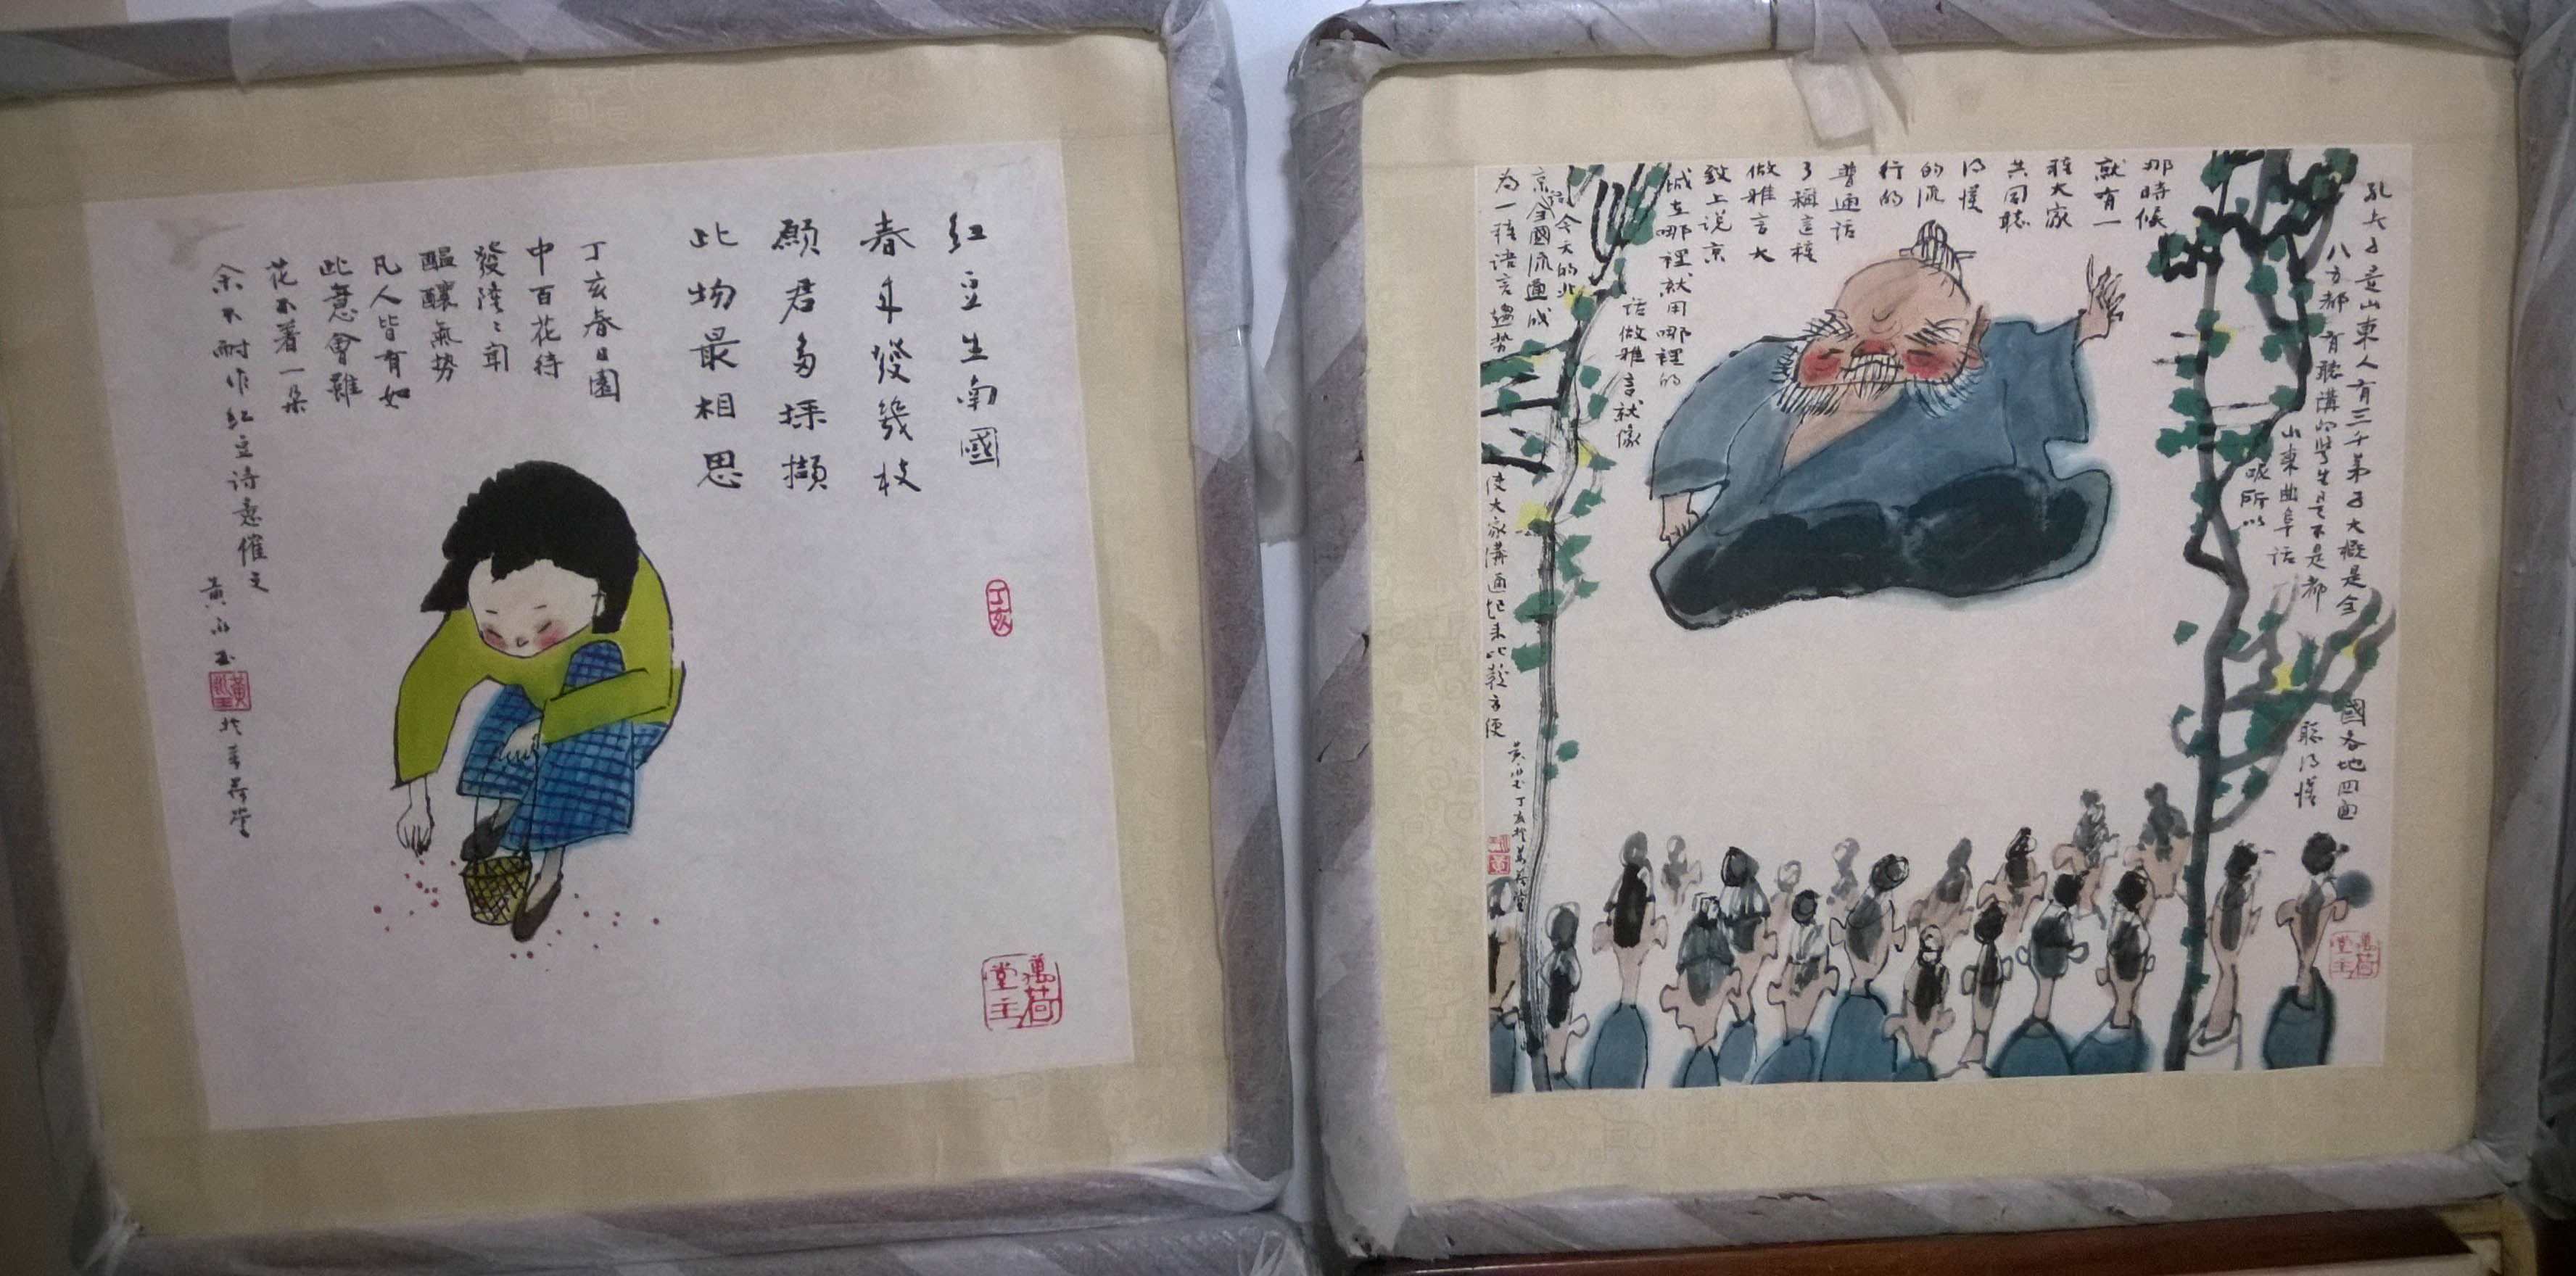 紅豆生南國
春來發幾枝
願君多採擷
此物最相思
丁亥春日園
中百花待
發陸々聞
醖釀氣势
凡人皆有如
此意會雖
花不着一朵
余不耐作紅豆诗意催之
黄永玉
黃永玉
於萬荷堂
丁亥
萬荷堂主
孔夫子是山東人有三千弟子大概是全
國各地四面
八方都有聽講的學生是不是都
聽得懂
山東曲阜话
呢所以
那時候
就有一
種大家
共同聽
得懂
的流
行的
普通话
了稱這種
做雅言大
致上说京
城在哪裡就用哪裡的
话做雅言就像
今天的北
京话全國流通成
为一種语言趨势
使大家溝通起来比較方便
黄永玉丁亥於萬荷堂
萬荷堂主